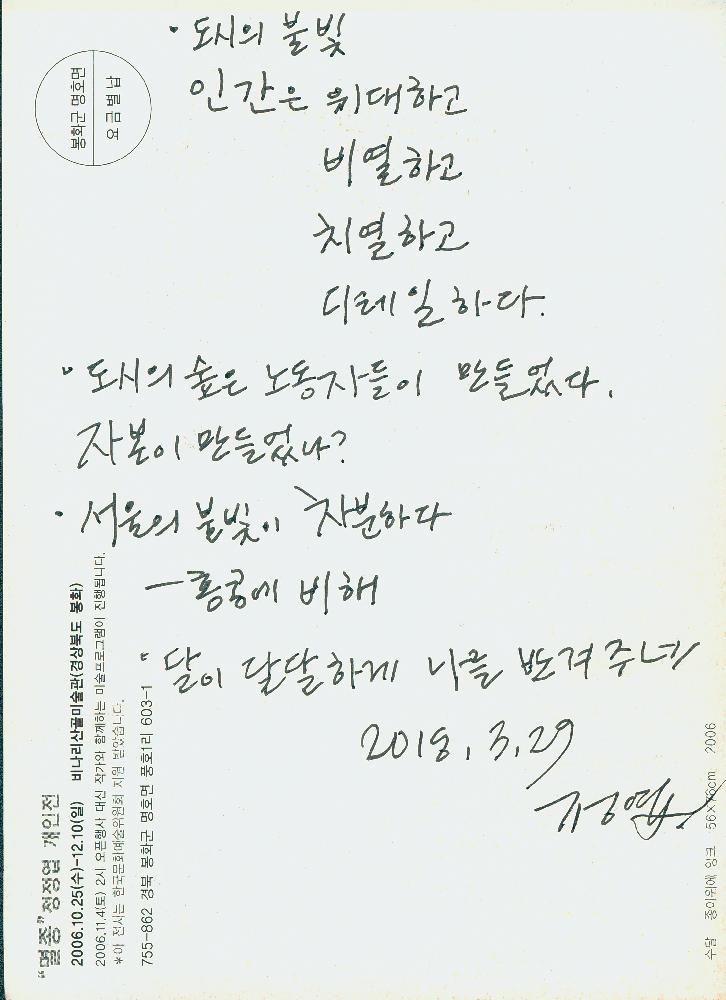 · 도시의 불빛
인간은 위대하고
비열하고
치열하고
디테일하다.
· 도시의 숲은 노동자들이 만들었다.
자본이 만들었나?
· 서울의 불빛이 차분하다
— 홍콩에 비해
· 달이 달달하게 나를 반겨주네
2018. 3. 29
정엽
봉화군 명호면
요금별납
“멸종” 정정엽 개인전
2006.10.25(수)-12.10(일) 비나리산골미술관(경상북도 봉화)
2006.11.4(토) 2시 오픈행사 대신 작가와 함께하는 미술프로그램이 진행됩니다.
*이 전시는 한국문화예술위원회 지원 받았습니다.
755-862 경북 봉화군 명호면 풍호1리 603-1
수담 종이위에 잉크 56×76cm 2006